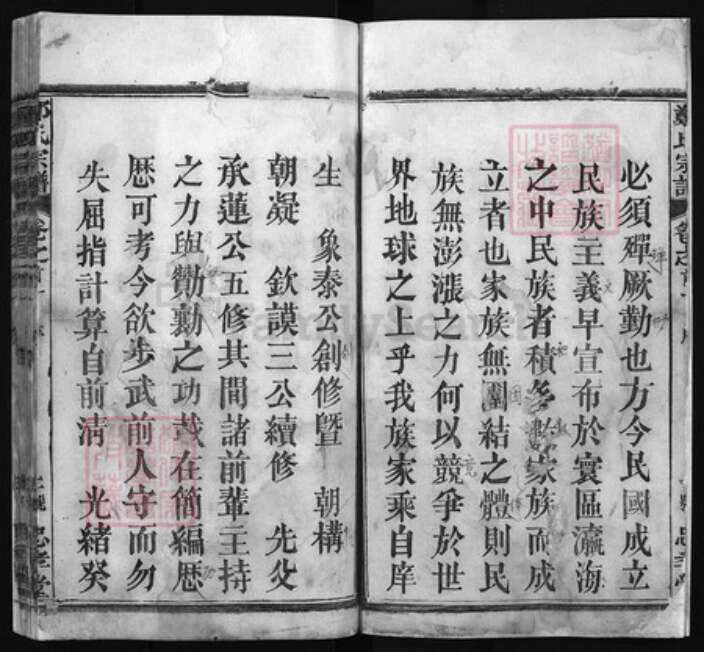 必須殫厥勤也方今民國成立
民族主義早宣布於寰區瀛海
之中民族者積多數家族而成
立者也家族無團結之體則民
族無澎漲之力何以競爭於世
界地球之上乎我族家乘自庠
生 象泰公創修暨 朝構
朝凝 欽謨三公續修 先父
承蓮公五修其間諸前輩主持
之力與勷勷之功載在簡編歷
歷可考今欲步武前人守而勿
失屈指計算自前淸 光緒癸
鄭氏宗譜
卷之首
FamilySearch